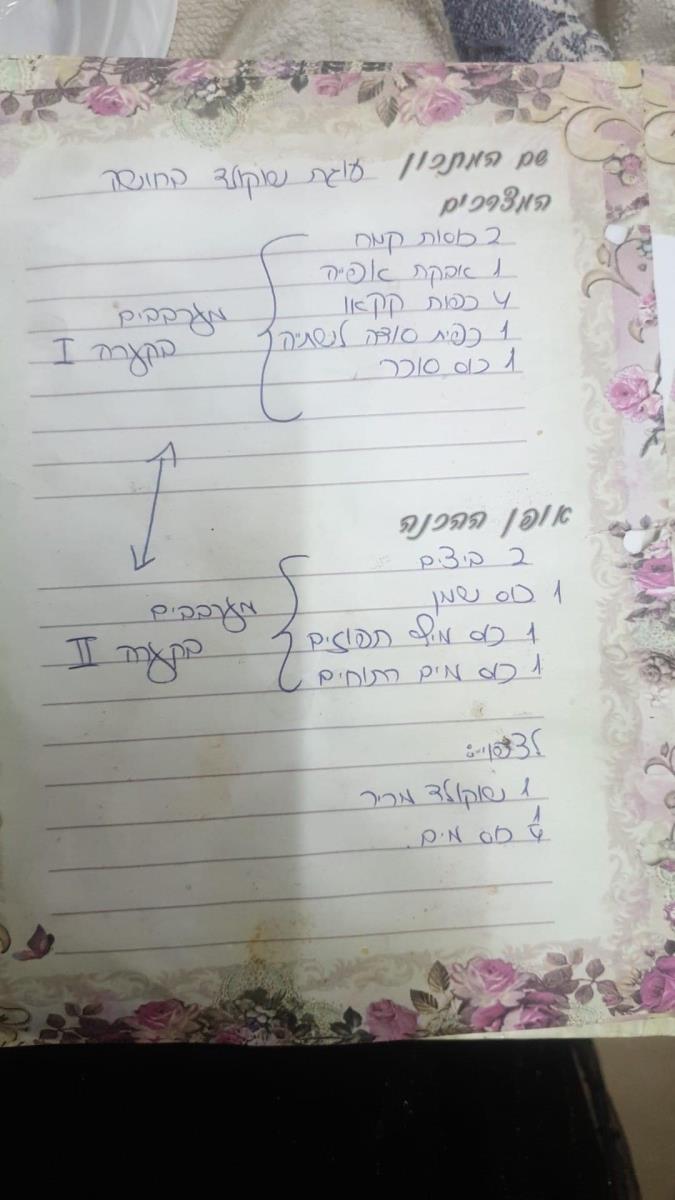 שם המתכון עוגת שוקולד בחושה
המצרכים
2 כוסות קמח
1 אבקת אפיה
4 כפות קקאו
1 כפית סודה לשתיה
1 כוס סוכר
מערבבים
בקערה I
אופן ההכנה
2 ביצים
1 כוס שמן
1 כוס מיץ תפוזים
1 כוס מים רותחים
מערבבים
בקערה II
לציפוי:
1 שוקולד מריר
1/4 כוס מים.